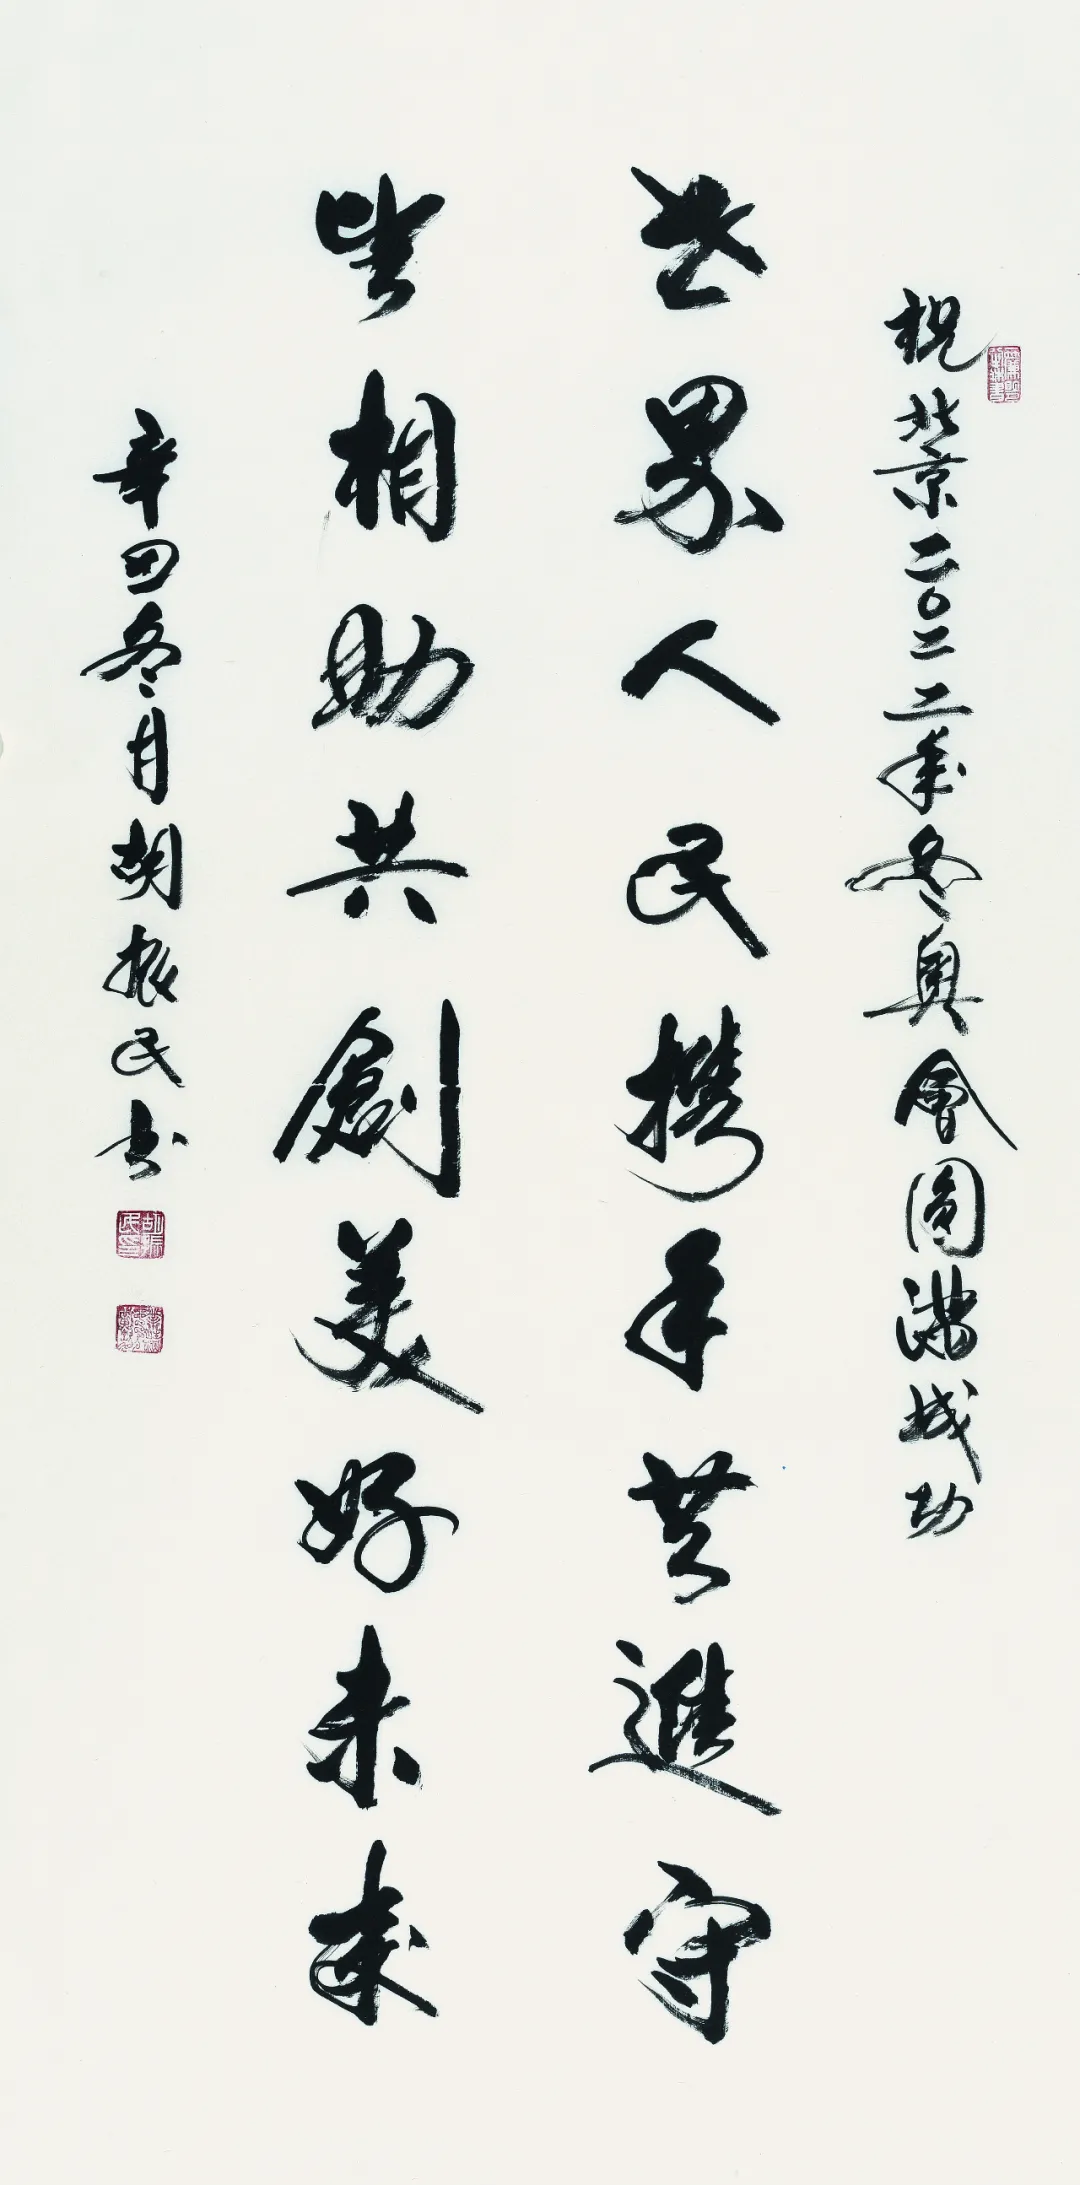 祝北京二〇二二年冬奥會圓滿成功
世界人民携手共進守
望相助共創美好未来
辛丑冬月胡振民书
胡振民印